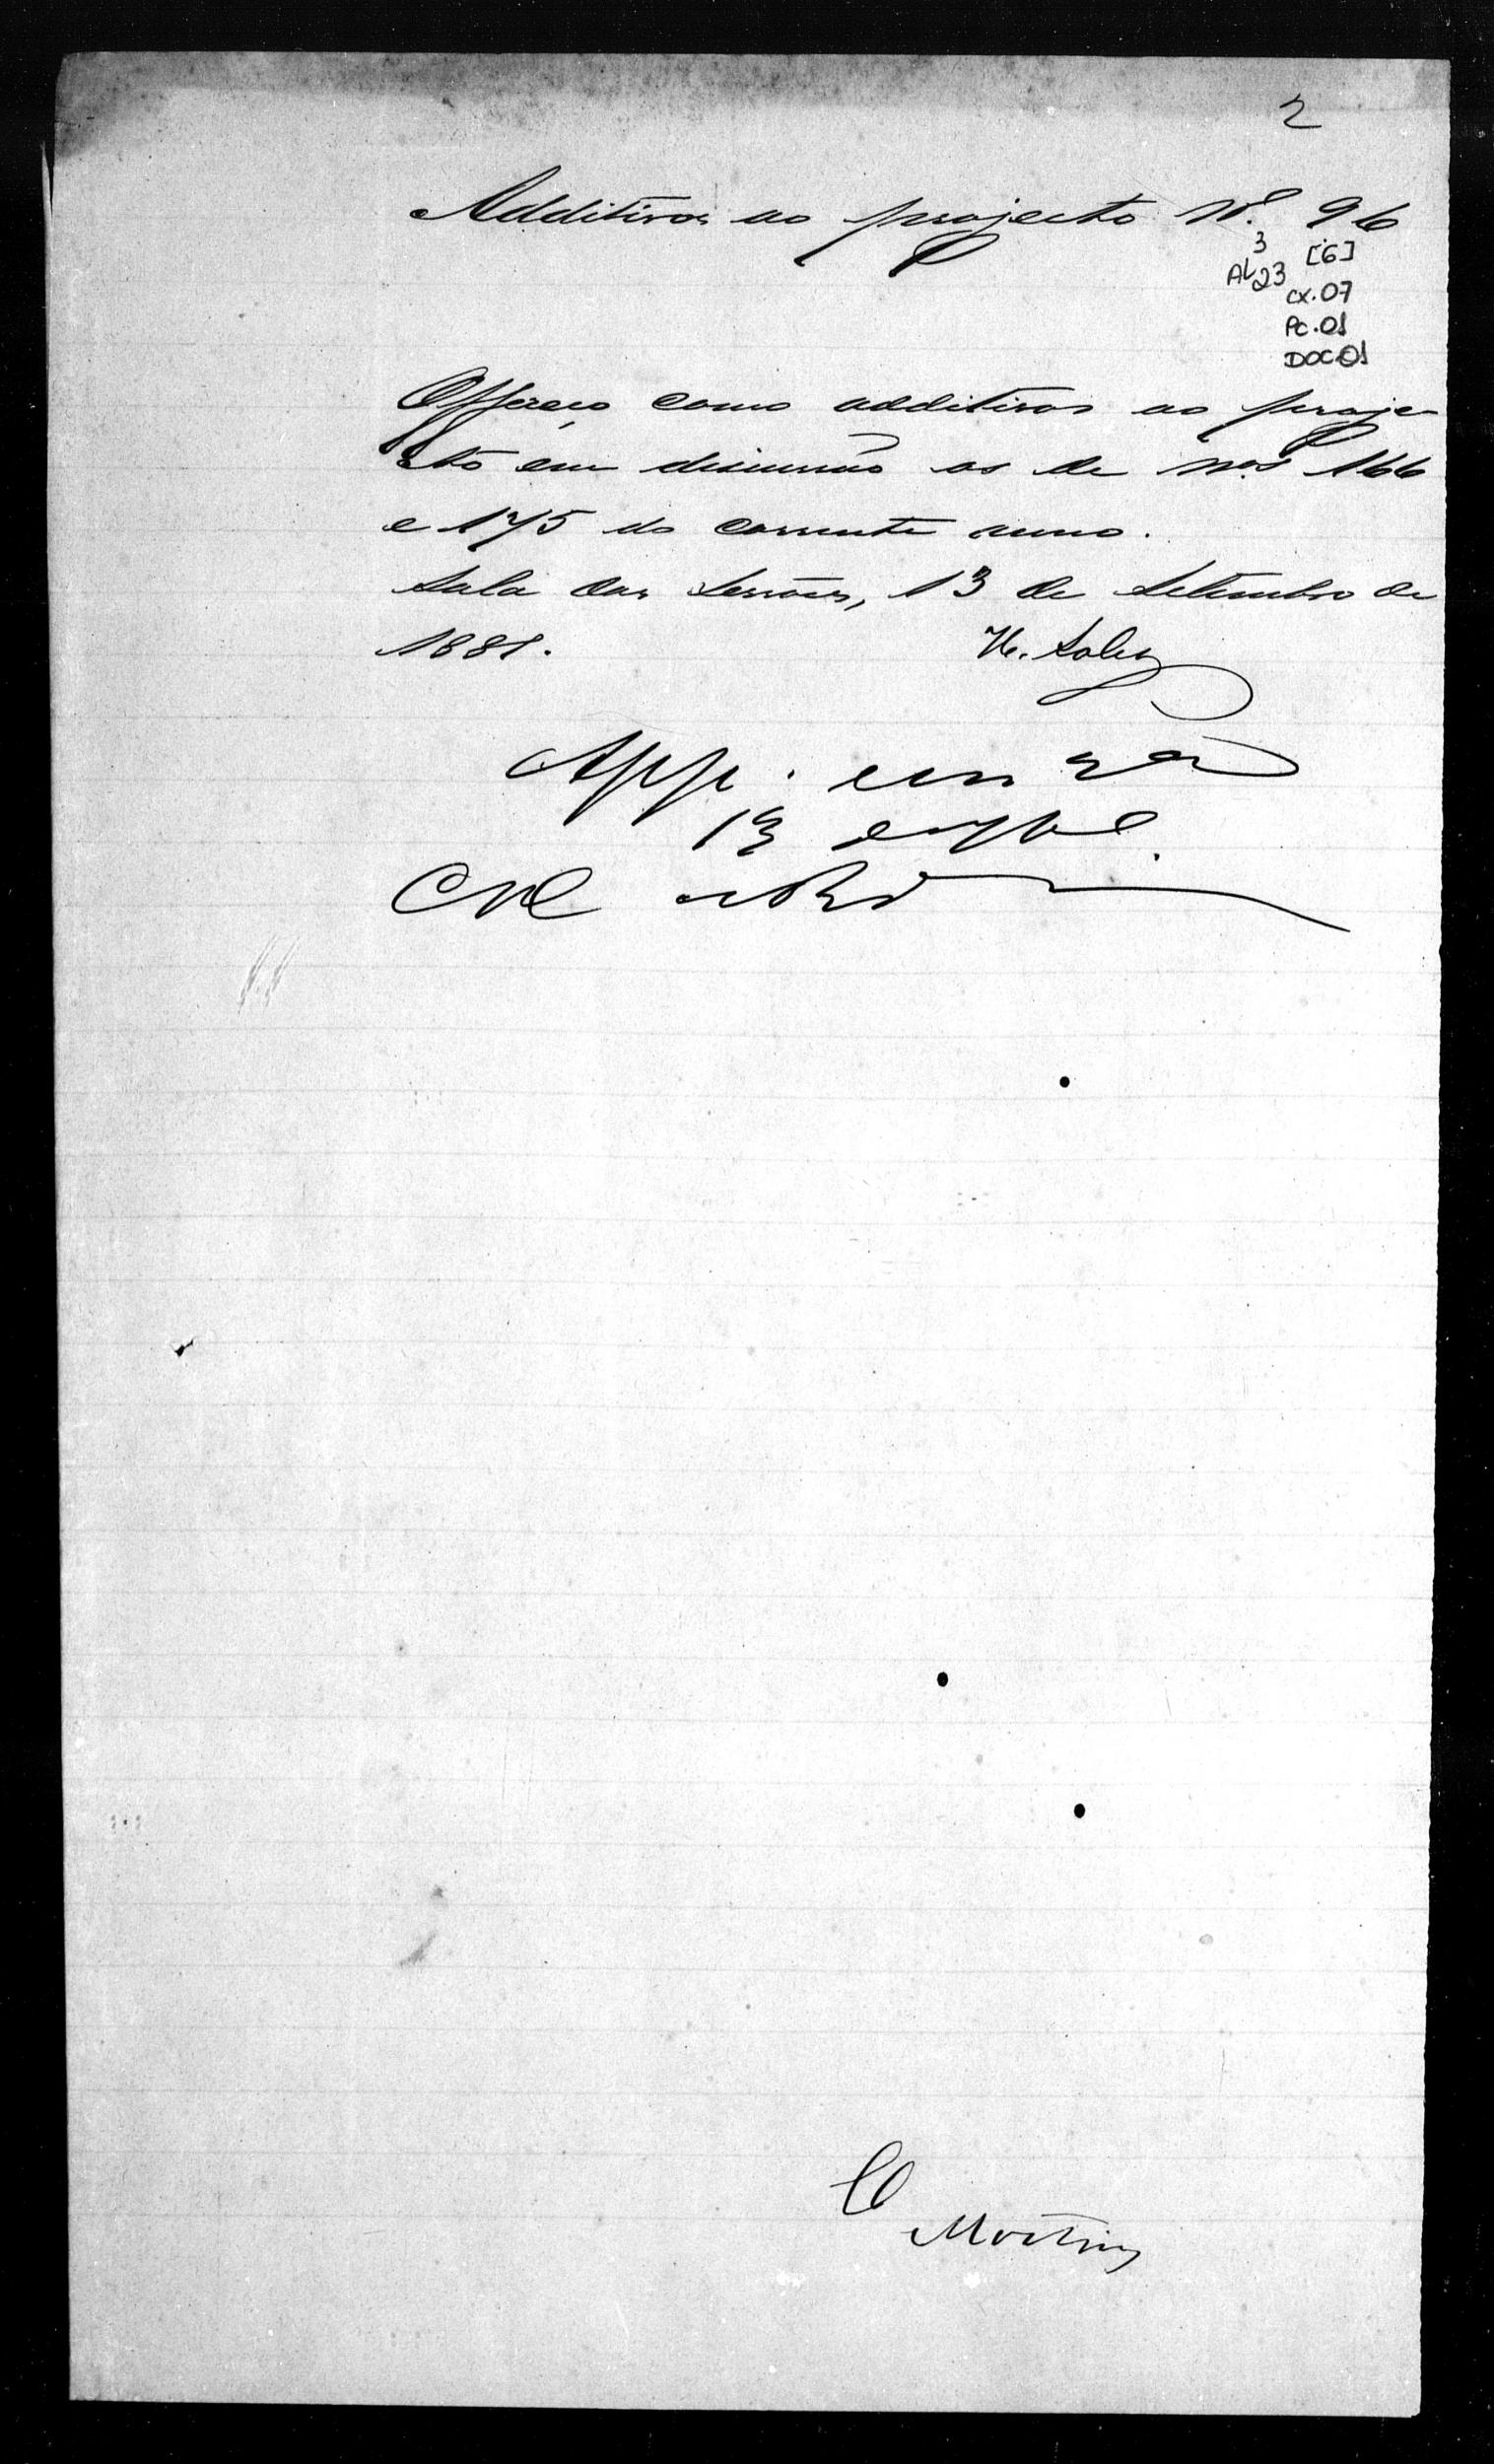 2
Additivos ao projecto Nº. 96
3
AL23 [6]
cx.07
Pc.01
DOC01
Offereço como additivos ao proje-
cto em discussão os de Nos 166
e 175 do corrente anno.
Sala das Sessões, 13 de Setembro de
1888.
H. Sales
App. em 2a
13
Martins